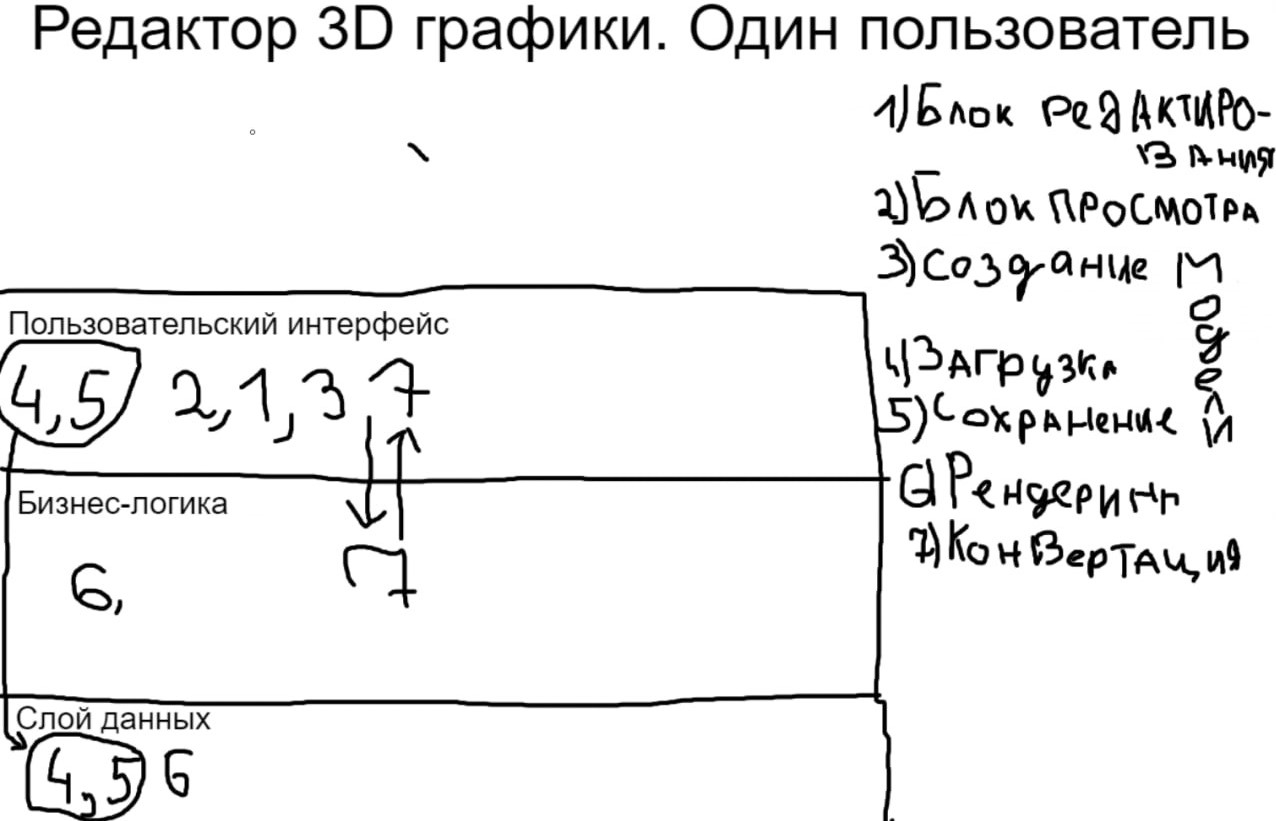 Редактор 3D графики. Один пользователь
1) Блок редактиро-
вания
2) Блок просмотра
3) Создание модели
4) Загрузка
5) Сохранение
6) Рендеринг
7) Конвертация
Пользовательский интерфейс
4,5 2,1,3 7
Бизнес-логика
6, 7
Слой данных
4,5 6